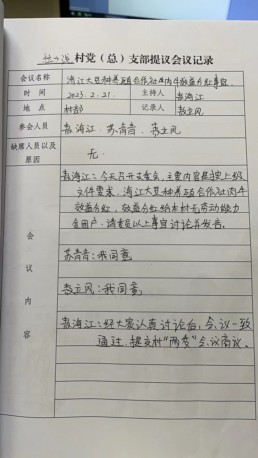 村党（总）支部提议会议记录
会议名称 海江大豆种养殖合作社肉牛效益分红事宜
时间 2023.2.21 主持人 海江
地点 村部 记录人 立风
参会人员 海江、苏青音、立风
缺席人员以及原因 无.
会议内容
海江：今天召开支委会，主要内容是按上级
文件要求，海江大豆种养殖合作社肉牛
效益分红，效益分红给本村无劳动能力
户，请委员以上事宜讨论并发言。
苏青音：我同意，
立风：我同意，
海江：经大家认真讨论后，会议一致
通过，提交村“两委”会议商议。